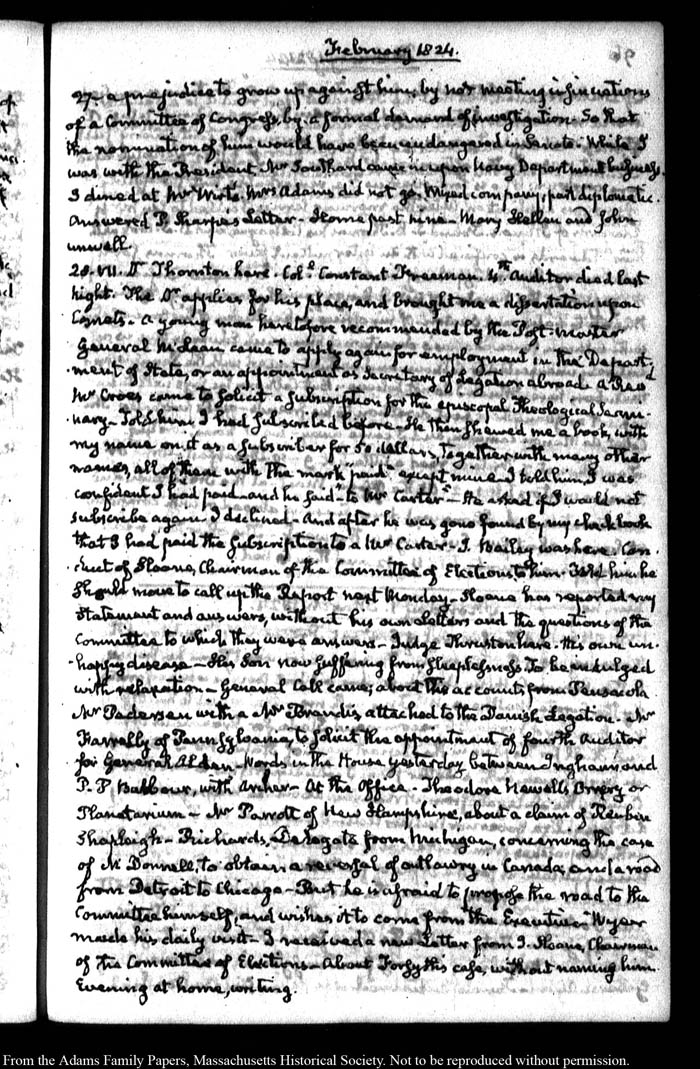 February 1824.
27. a prejudice to grow up against him, by not meeting insinuations
of a Committee of Congress, by a formal demand of investigation. So that
the nomination of him would have been endangered in Senate. While I
was with the President Mr Southard came in upon Navy Department business.
I dined at Mr Wirt's. Mrs Adams did not go. Mixed company, part diplomatic.
Answered P. Sharpe's Letter – Home past nine – Mary Hellen and John
unwell.
28. VII. Dr Thornton here. Coll. Constant Freeman, 4th Auditor died last
night. The Dr applies for his place, and brought me a dissertation upon
Comets. A young man heretofore recommended by the Post-Master
General McLean came to apply again for employment in the Depart-
ment of State, or an appointment as Secretary of Legation abroad. A Revd
Mr Croes came to solicit a subscription for the episcopal Theological Semi-
nary – Told him I had subscribed before – He then shewed me a book, with
my name on it as a subscriber for 50 dollars, together with many other
names, all of them with the mark "paid" except mine – I told him I was
confident I had paid – and he said – to Mr Carter – He asked if I would not
subscribe again. I declined – and after he was gone found by my check book
that I had paid the subscription to a Mr Carter – J. Bailey was here. Con-
duct of Sloane, Chairman of the Committee of Elections, to him. Told him he
should move to call up the Report next Monday – Sloane has reported my
statement and answers, without his own Letters and the questions of the
Committee to which they were answers – Judge Thruston here. His own un-
happy disease – His Son now suffering from sleeplessness. To be indulged
with relaxation – General Call came; about his accounts from Pensacola
Mr Pedersen with a Mr Brandis, attached to the Danish Legation. Mr
Farrelly of Pennsylvania, to solicit the appointment of fourth Auditor
for General Alden – Words in the House yesterday between Ingham and
P. P. Barbour, with Archer – At the Office – Theodore Newell's Orrery or
Planetarium – Mr Parrott of New Hampshire, about a claim of Reuben
Shapleigh – Richards, Delegate from Michigan, concerning the case
of McDonnell, to obtain a reversal of outlawry in Canada, and a road
from Detroit to Chicago – But he is afraid to propose the road to the
Committee himself, and wishes it to come from the Executive – Wyer
made his daily visit – I received a new Letter from J. Sloane, Chairman
of the Committee of Elections – About Forsyth's case, without naming him.
Evening at home, writing.
From the Adams Family Papers, Massachusetts Historical Society. Not to be reproduced without permission.